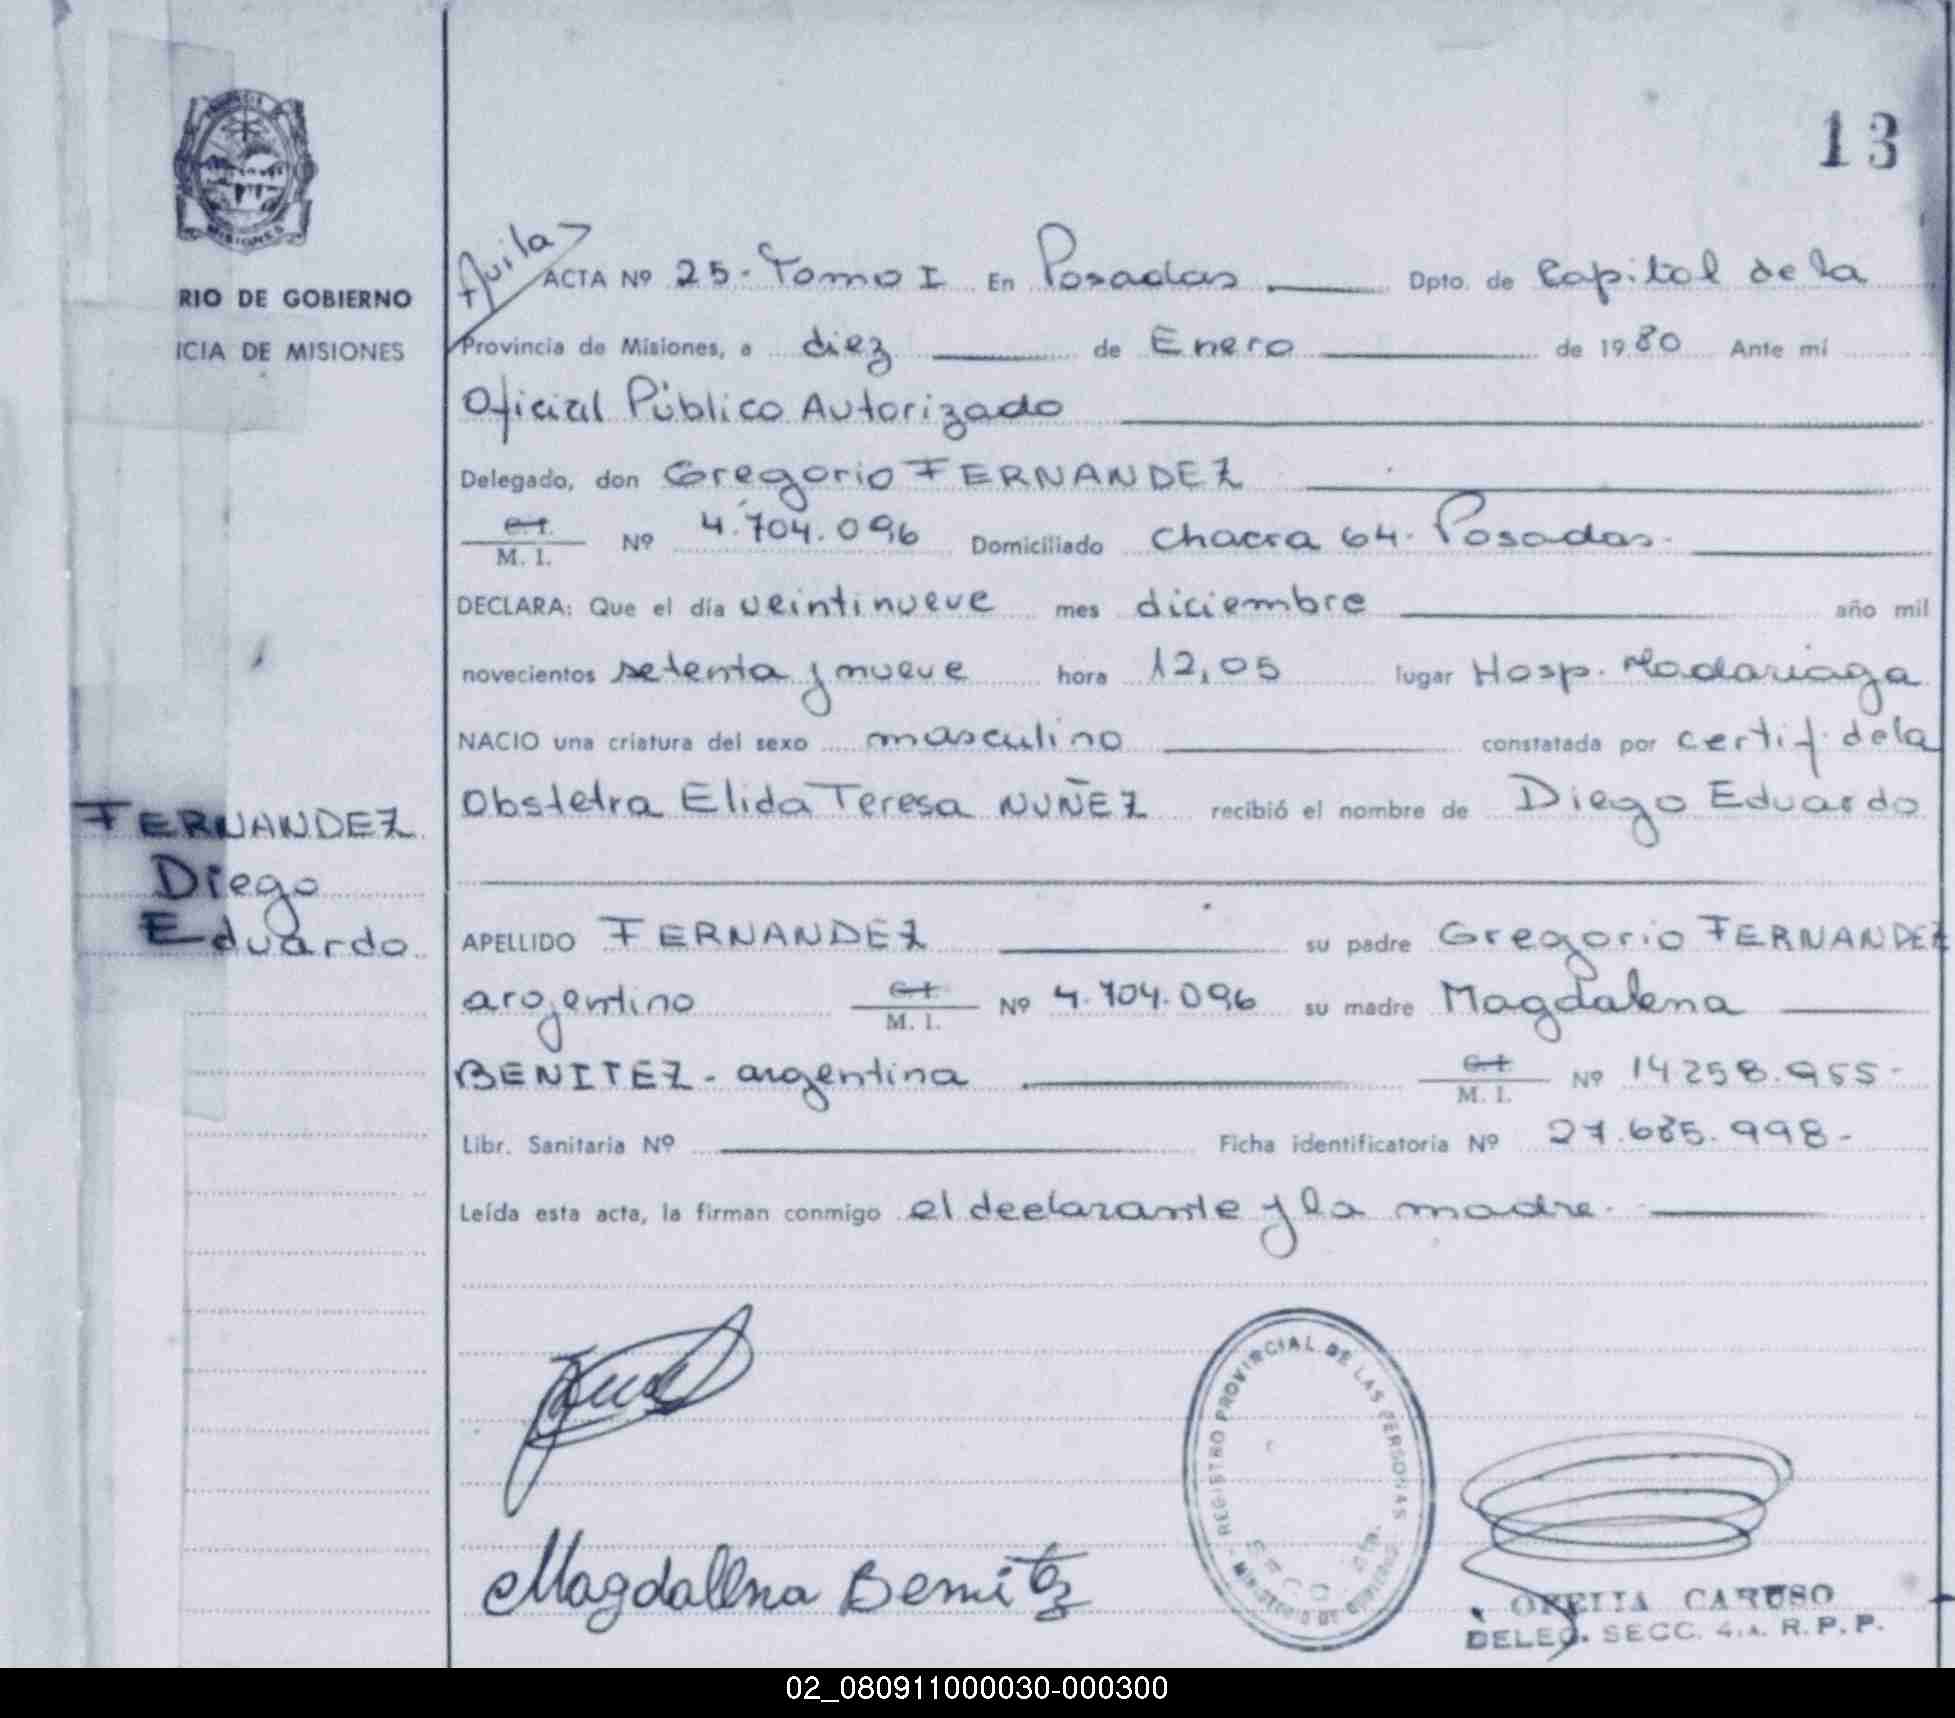 13
MISIONES
RIO DE GOBIERNO
ICIA DE MISIONES
Avila
ACTA Nº 25 - Tomo I En Posadas Dpto. de Capital de la
Provincia de Misiones, a diez de Enero de 1980 Ante mí
Oficial Público Autorizado
Delegado, don Gregorio FERNANDEZ
C.I. / M. I. Nº 4.704.096 Domiciliado Chacra 64. Posadas.
DECLARA: Que el día veintinueve mes diciembre año mil
novecientos setenta y nueve hora 12,05 lugar Hosp. Madariaga
NACIO una criatura del sexo masculino constatada por certif. de la
Obstetra Elida Teresa NUÑEZ recibió el nombre de Diego Eduardo
FERNANDEZ
Diego
Eduardo
APELLIDO FERNANDEZ su padre Gregorio FERNANDEZ
argentino C.I. / M. I. Nº 4.704.096 su madre Magdalena
BENITEZ - argentina C.I. / M. I. Nº 14258.955-
Libr. Sanitaria Nº Ficha identificatoria Nº 27.685.998-
Leída esta acta, la firman conmigo el declarante y la madre.
Magdalena Benitez
REGISTRO PROVINCIAL DE LAS PERSONAS
MINISTERIO DE GOBIERNO
OFELIA CARUSO
DELEG. SECC. 4.a. R.P.P.
02_080911000030-000300